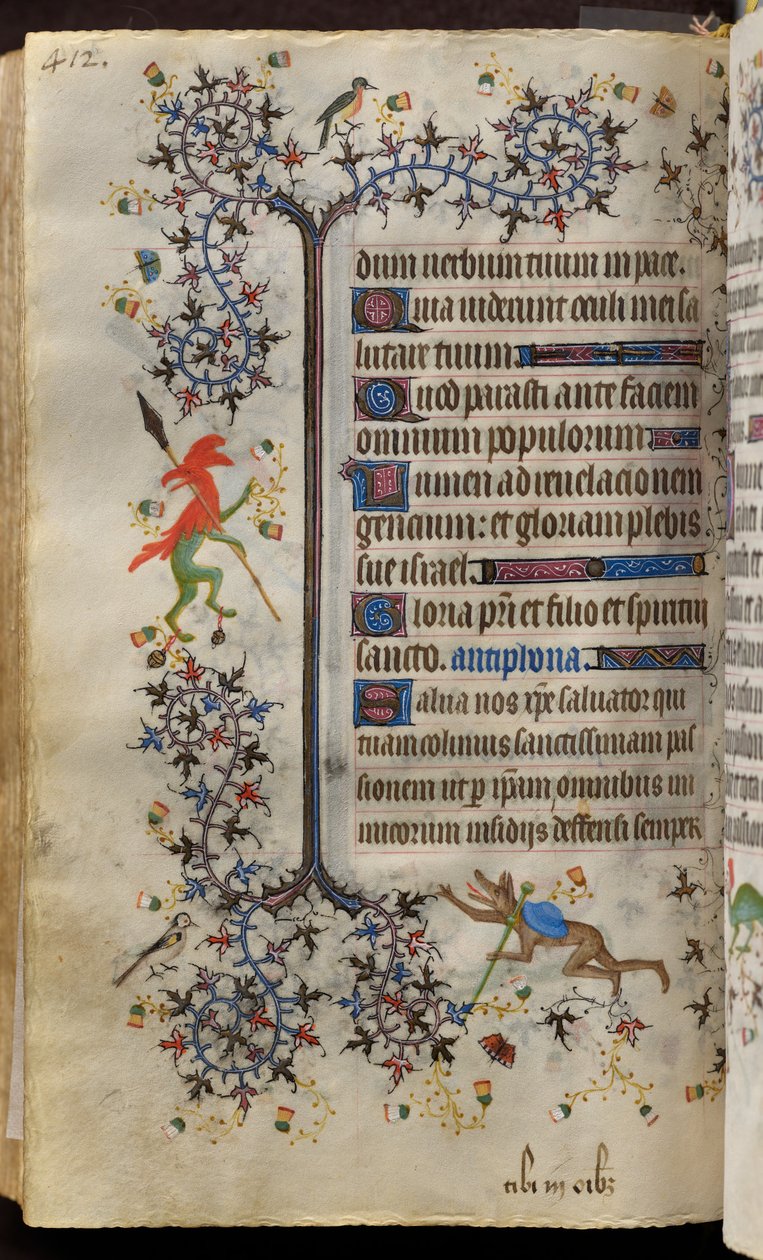 412.
dum uerbum tuum in pace.
Quia uiderunt oculi mei sa
lutare tuum.
Quod parasti ante faciem
omnium populorum
Lumen ad reuelacionem
gencium: et gloriam plebis
sue israel.
Gloria pri et filio et spiritui
sancto. antiphona.
Salua nos xpe saluator qui
tuam colimus sanctissimam pas
sionem ut per ipam, omnibus ini
micorum insidijs deffensi semper
tibi in